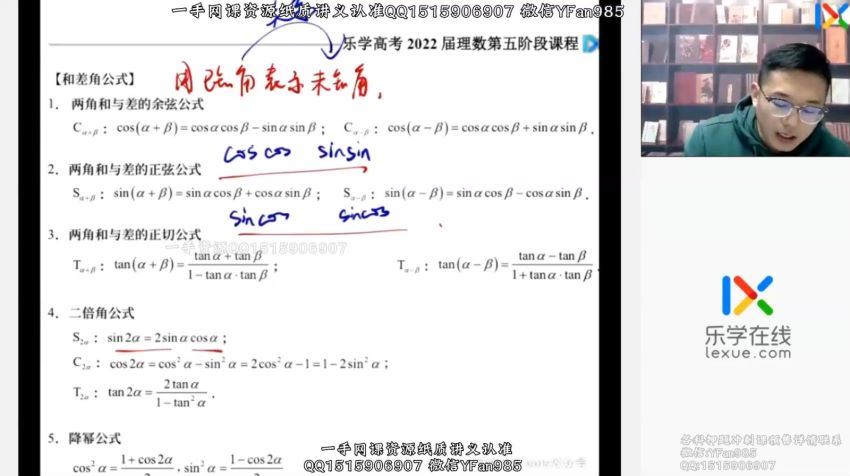 一手网课资源纸质讲义认准QQ1515906907 微信YFan985
乐学高考 2022 届理数第五阶段课程
【和差角公式】
用已知角表示未知角.
1. 两角和与差的余弦公式
C_{α+β}：cos(α+β)=cosαcosβ−sinαsinβ； C_{α−β}：cos(α−β)=cosαcosβ+sinαsinβ.
coscos sinsin
2. 两角和与差的正弦公式
S_{α+β}：sin(α+β)=sinαcosβ+cosαsinβ； S_{α−β}：sin(α−β)=sinαcosβ−cosαsinβ.
sincos sincos
3. 两角和与差的正切公式
一手资源QQ1515906907
T_{α+β}：tan(α+β)=\frac{tanα+tanβ}{1−tanα·tanβ}； T_{α−β}：tan(α−β)=\frac{tanα−tanβ}{1+tanα·tanβ}
4. 二倍角公式
S_{2α}：sin2α=2sinαcosα；
C_{2α}：cos2α=cos²α−sin²α=2cos²α−1=1−2sin²α；
T_{2α}：tan2α=\frac{2tanα}{1−tan²α}.
5. 降幂公式
cos²α=\frac{1+cos2α}{},sin²α=\frac{1−cos2α}{}
一手网课资源纸质讲义认准
QQ1515906907 微信YFan985
乐学在线
lexue.com
各科押题冲刺课预售详情联系
微信YFan985
QQ1515906907